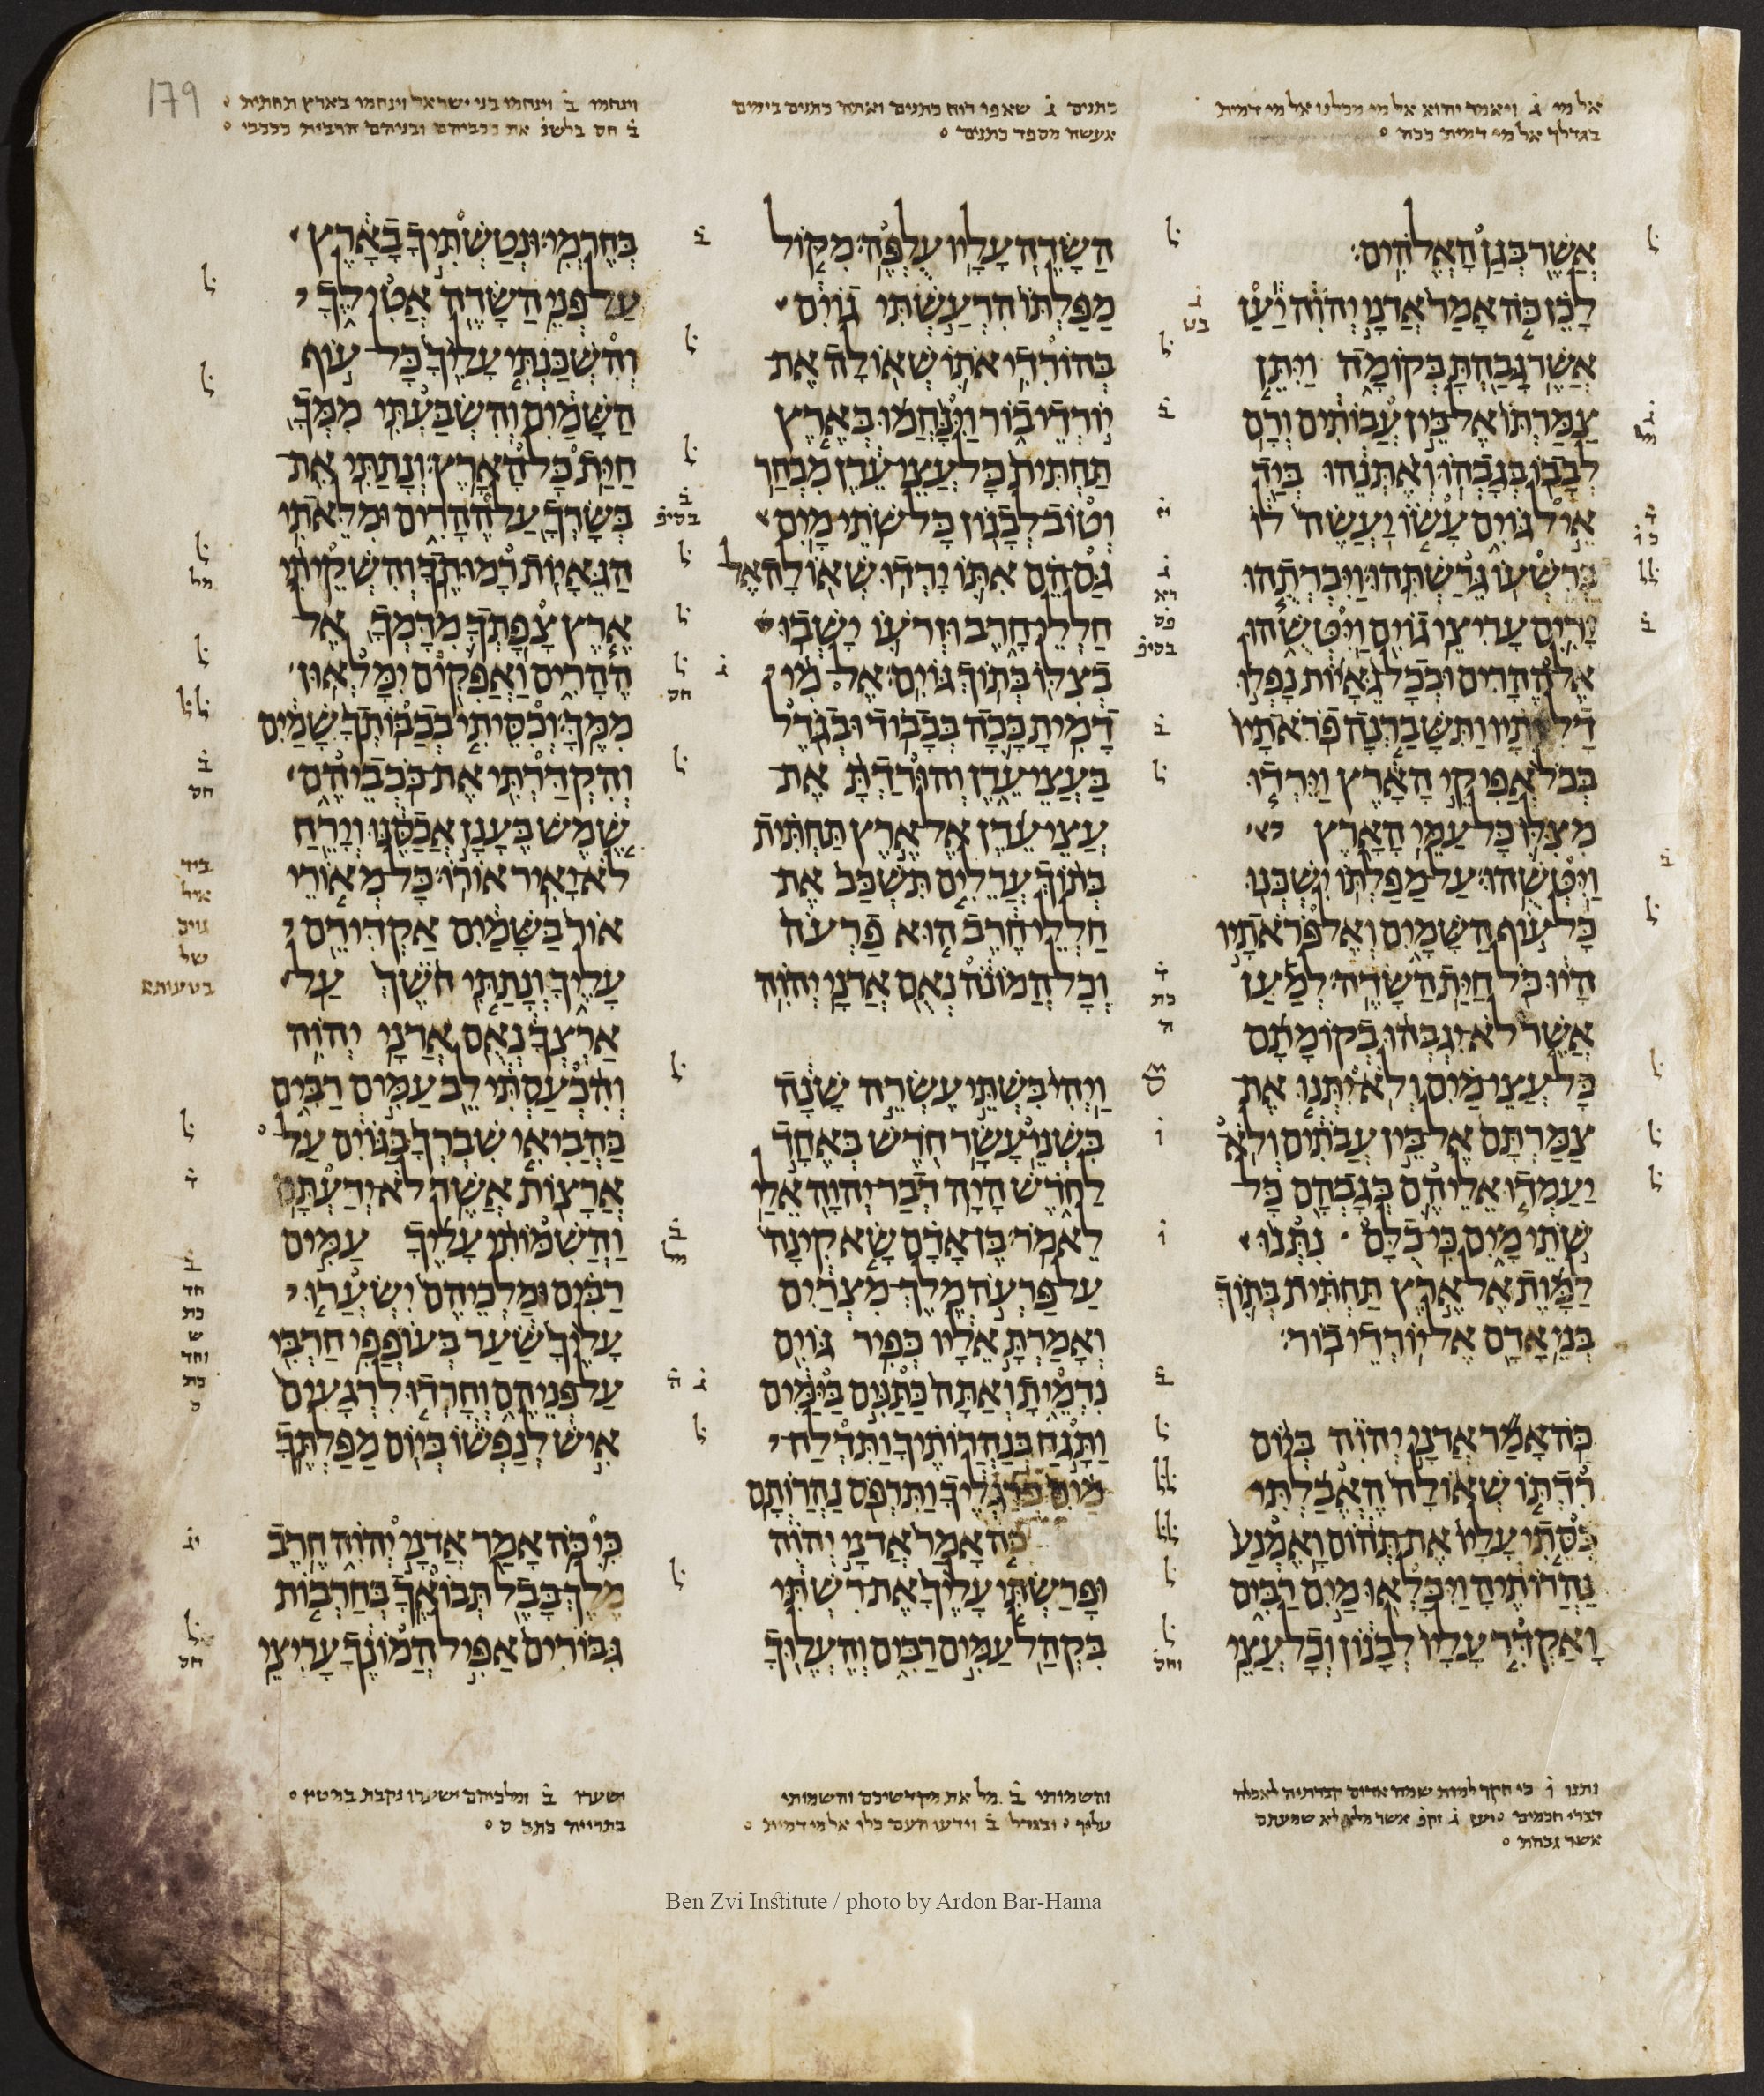 179
אל מי ג ויאמר יהוא אל מי מכלנו אל מי דמית
בגדלך אל מי דמית ככה
כתנים ג שאפו רוח כתנים ואתה כתנים בימים
אעשה מספד כתנים
וינחמו ב וינחמו בני ישראל וינחמו בארץ תחתית
ב חס בלשנ את ככביהם ובניהם הרבית כככבי
אשר בגן האלהים
לכן כה אמר אדני יהוה יען
אשר גבהת בקומה ויתן
צמרתו אל בין עבותים ורם
לבבו בגבהו ואתנהו ביד
איל גוים עשו יעשה לו
כרשעו גרשתהו ויכרתהו
זרים עריצי גוים ויטשהו
אל ההרים ובכל גאיות נפלו
דליותיו ותשברנה פראתיו
בכל אפיקי הארץ וירדו
מצלו כל עמי הארץ
ויטשהו על מפלתו ישכנו
כל עוף השמים ואל פראתיו
היו כל חית השדה למען
אשר לא יגבהו בקומתם
כל עצי מים ולא יתנו את
צמרתם אל בין עבתים ולא
יעמדו אליהם בגבהם כל
שתי מים כי כלם נתנו
למות אל ארץ תחתית בתוך
בני אדם אל יורדי בור
כה אמר אדני יהוה ביום
רדתו שאולה האבלתי
כסתי עליו את תהום ואמנע
נהרותיה ויכלאו מים רבים
ואקדר עליו לבנון וכל עצי
השדה עליו עלפה מקול
מפלתו הרעשתי גוים
בהורדי אתו שאולה את
יורדי בור וינחמו בארץ
תחתית כל עצי עדן מבחר
וטוב לבנון כל שתי מים
גם הם אתו ירדו שאולה אל
חללי חרב וזרעו ישבו
בצלו בתוך גוים אל מי
דמית ככה בכבוד ובגדל
בעצי עדן והורדת את
עצי עדן אל ארץ תחתית
בתוך ערלים תשכב את
חללי חרב הוא פרעה
וכל המונה נאם אדני יהוה
ויהי בשתי עשרה שנה
בשני עשר חדש באחד
לחדש היה דבר יהוה אלי
לאמר בן אדם שא קינה
על פרעה מלך מצרים
ואמרת אליו כפיר גוים
נדמית ואתה כתנים בימים
ותגח בנהרותיך ותדלח
מים ברגליך ותרפס נהרותם
כה אמר אדני יהוה
ופרשתי עליך את רשתי
בקהל עמים רבים והעלוך
בחרמי ונטשתיך בארץ
על פני השדה אטילך
והשכנתי עליך כל עוף
השמים והשבעתי ממך
חית כל הארץ ונתתי את
בשרך על ההרים ומלאתי
הגאיות רמותך והשקיתי
ארץ צפתך מדמך אל
ההרים ואפקים ימלאון
ממך וכסיתי בכבותך שמים
והקדרתי את ככביהם
שמש בענן אכסנו וירח
לא יאיר אורו כל מאורי
אור בשמים אקדירם
עליך ונתתי חשך על
ארצך נאם אדני יהוה
והכעסתי לב עמים רבים
בהביאי שברך בגוים על
ארצות אשר לא ידעתם
והשמותי עליך עמים
רבים ומלכיהם ישערו
עליך שער בעופפי חרבי
על פניהם וחרדו לרגעים
איש לנפשו ביום מפלתך
כי כה אמר אדני יהוה חרב
מלך בבל תבואך בחרבות
גבורים אפיל המונך עריצי
נתנו ו כי חקך למות שמה אדום קברתיה לאכלה
דברי חכמים ויען ג זקפ אשר מלא לא שמעתם
אשר גבהת
והשמותי ב מל את מקדשיכם והשמותי
עליך ובגדל ב וידעו העם כלו אל מי דמית
ישערו ב ומלכיהם ישערו נקבת במטיו
בתרייה כתב ס
Ben Zvi Institute / photo by Ardon Bar-Hama